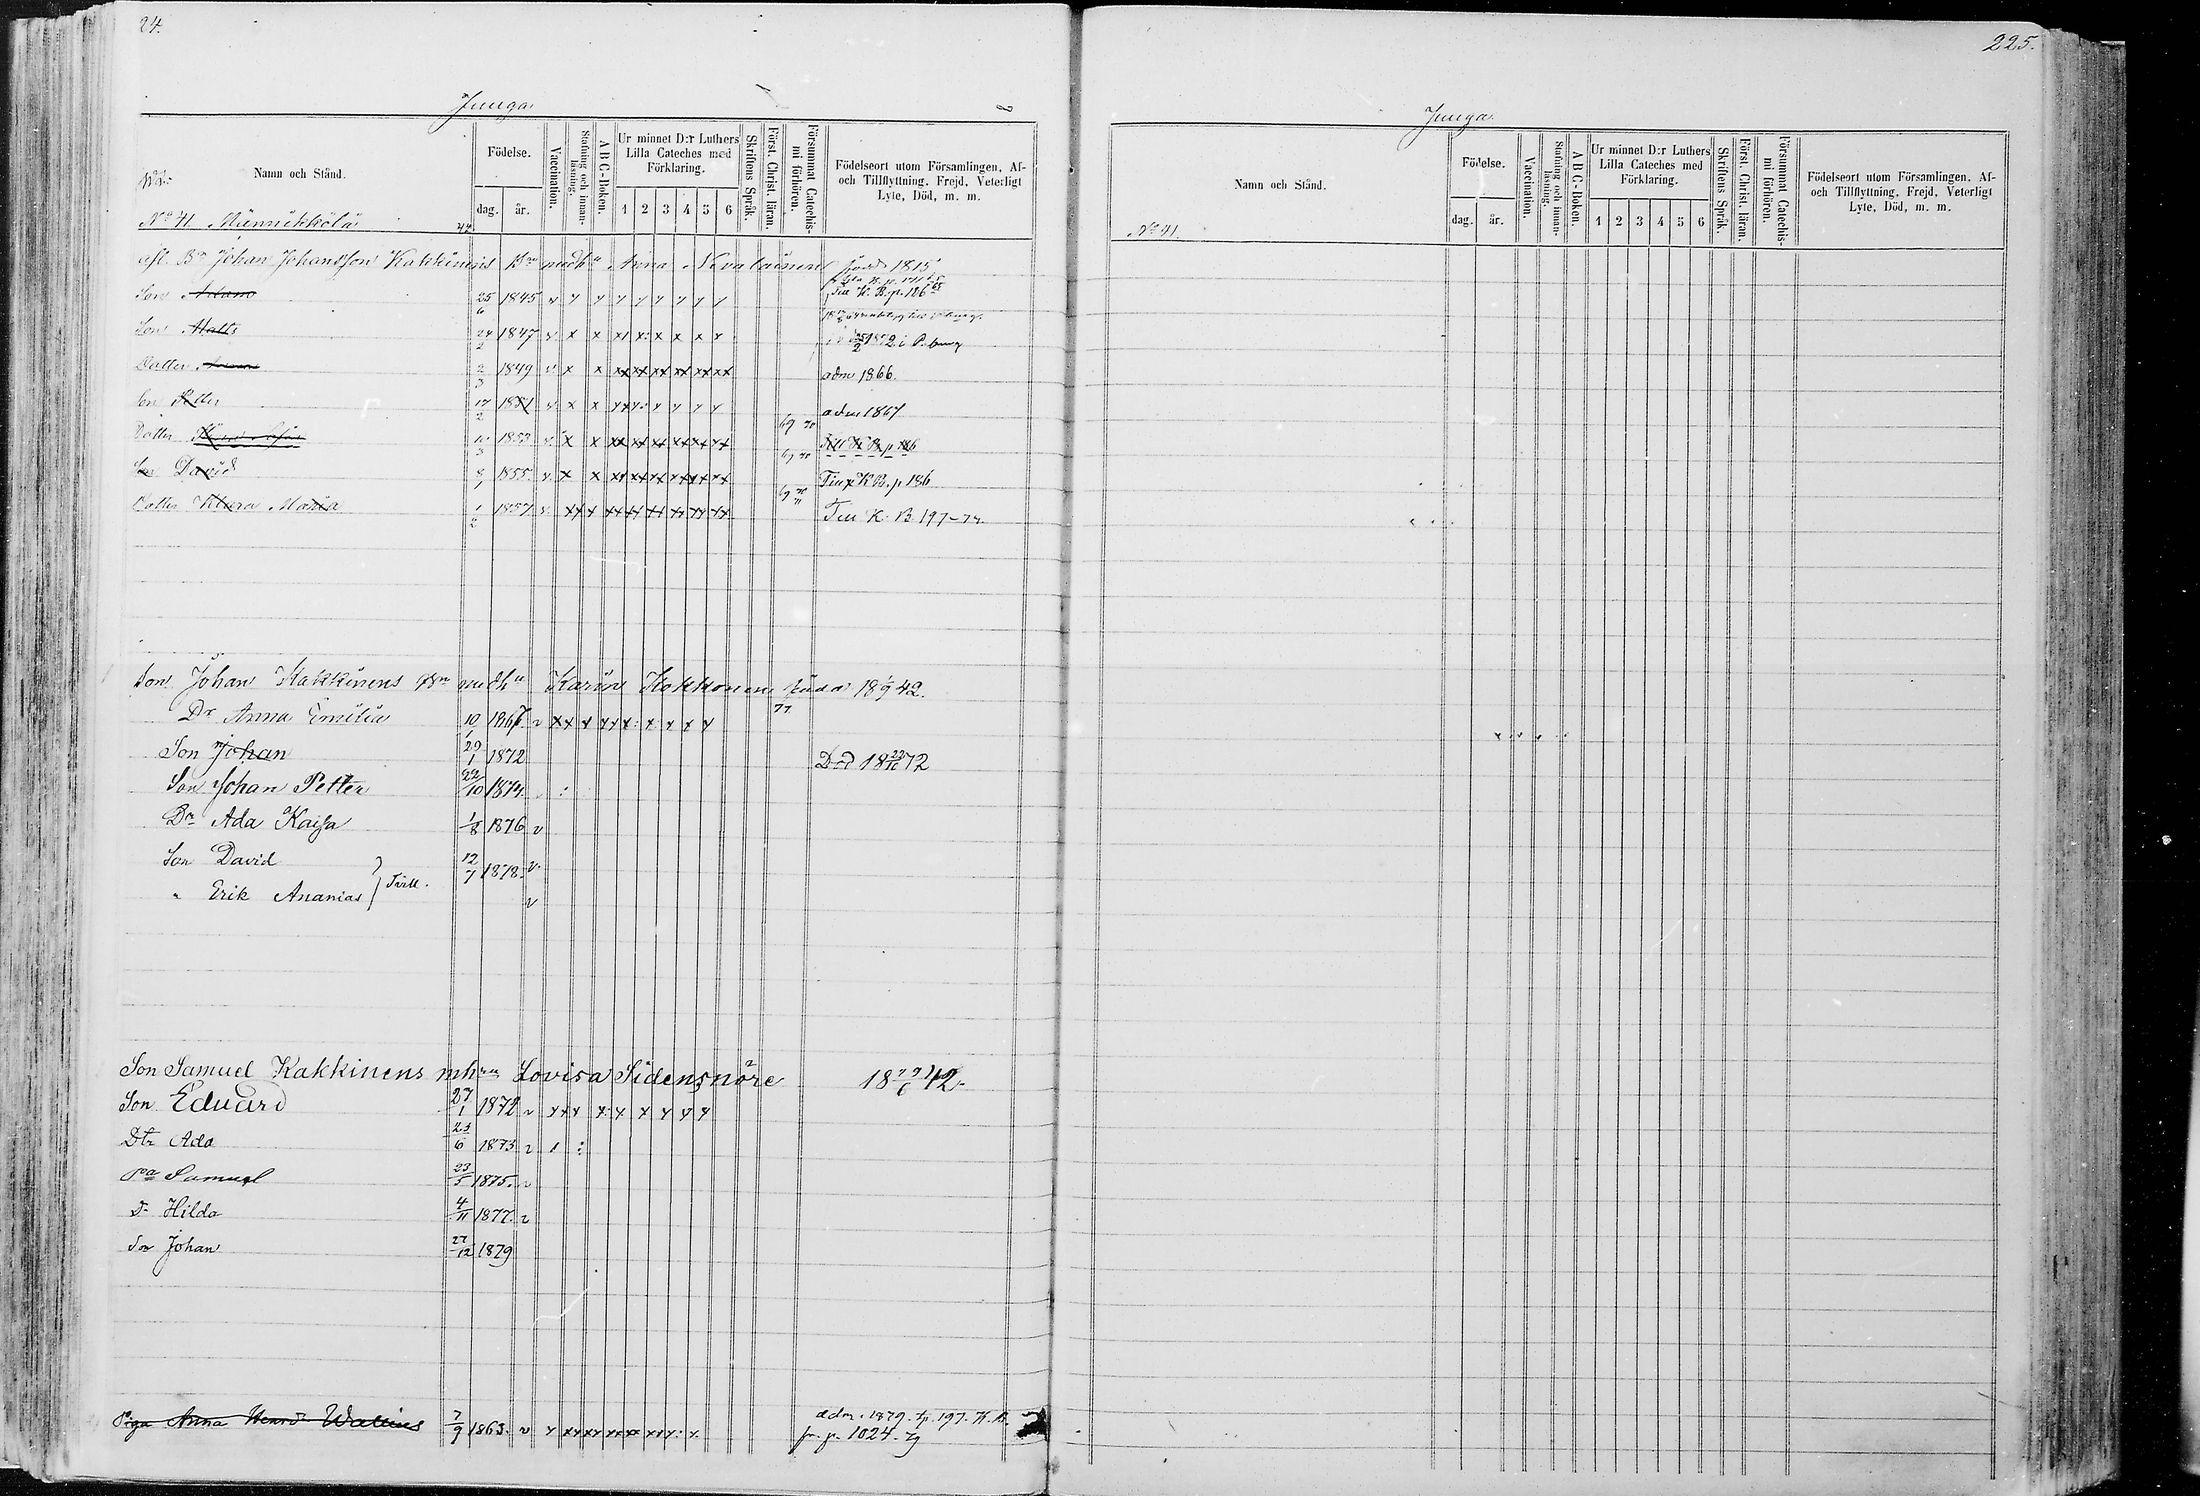 24.
Juuga
Namn och Stånd.
Födelse.
dag. år.
Vaccination.
Stafning och innanläsning.
A B C-Boken.
Ur minnet D:r Luthers Lilla Cateches med Förklaring.
1 2 3 4 5 6
Skriftens Språk.
Först. Christ. läran.
Försummat Catechismi förhören.
Födelseort utom Församlingen, Af- och Tillflyttning, Frejd, Veterligt Lyte, Död, m. m.
No 41 Männikkölä
afl. Bn Johan Johansson Kakkinens Anna född 1815
Son Adam 25/6 1845 Till K. B. p. 186
Son Matts 24/2 1847
Dotter 2/3 1849 adm 1866.
Son Petter 17/2 1851 adm 1867
Dotter 10/3 1853 Till K B p 186
Son David 8/7 1855 Till K B. p 186
Dotter Klara Maria 1/2 1857 Till K. B. 197-72
Son Johan Kakkinens Karin Kokkonen 18 1/9 42.
77
Dr Anna Emilia 10/1 1867
Son Johan 29/1 1872 Död 18 23/10 72
Son Johan Petter 22/10 1874
Dr Ada Kaisa 1/8 1876 v
Son David 12/7 1878. v
" Erik Ananias Tvill. v
Son Samuel Kakkinens mhru Lovisa Sidensnöre
Son Eduard 27/1 1872
Dtr Ada 23/6 1873 v
Samuel 23/5 1875. v
Dr Hilda 4/11 1877. v
Son Johan 27/12 1879
Piga Anna 7/9 1863. v adm. 1879. tp. 197. K. B.
fr. p. 1024.
225.
Juuga
Namn och Stånd.
Födelse.
dag. år.
Vaccination.
Stafning och innanläsning.
A B C-Boken.
Ur minnet D:r Luthers Lilla Cateches med Förklaring.
1 2 3 4 5 6
Skriftens Språk.
Först. Christ. läran.
Försummat Catechismi förhören.
Födelseort utom Församlingen, Af- och Tillflyttning, Frejd, Veterligt Lyte, Död, m. m.
No 41.